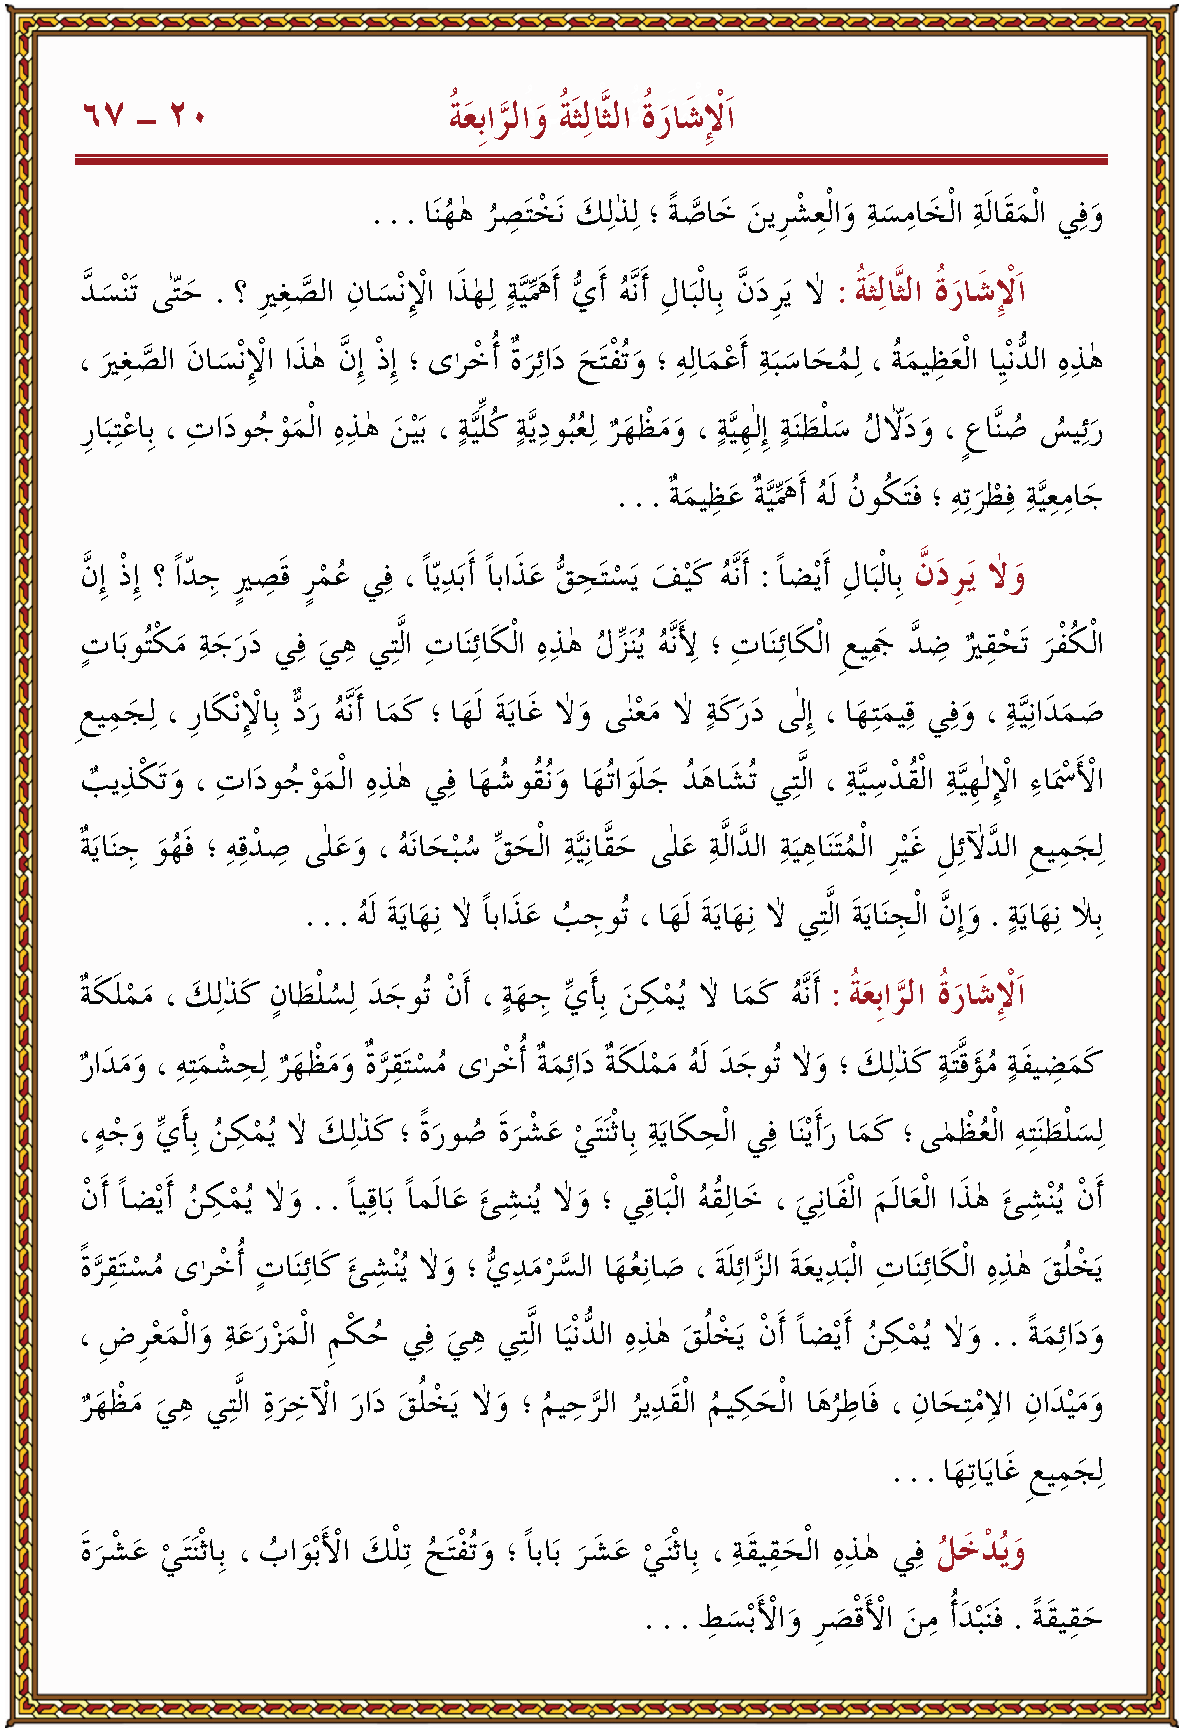 اَلْإِشَارَةُ الثَّالِثَةُ وَالرَّابِعَةُ
٢٠ – ٦٧
وَفِي الْمَقَالَةِ الْخَامِسَةِ وَالْعِشْرِينَ خَاصَّةً ؛ لِذٰلِكَ نَخْتَصِرُ هٰهُنَا . . .
اَلْإِشَارَةُ الثَّالِثَةُ : لَا يَرِدَنَّ بِالْبَالِ أَنَّهُ أَيُّ أَهَمِّيَّةٍ لِهٰذَا الْإِنْسَانِ الصَّغِيرِ ؟ . حَتّٰى تَنْسَدَّ
هٰذِهِ الدُّنْيَا الْعَظِيمَةُ ، لِمُحَاسَبَةِ أَعْمَالِهِ ؛ وَتُفْتَحَ دَائِرَةٌ أُخْرٰى ؛ إِذْ إِنَّ هٰذَا الْإِنْسَانَ الصَّغِيرَ ،
رَئِيسُ صُنَّاعٍ ، وَدَلَّالُ سَلْطَنَةٍ إِلٰهِيَّةٍ ، وَمَظْهَرٌ لِعُبُودِيَّةٍ كُلِّيَّةٍ ، بَيْنَ هٰذِهِ الْمَوْجُودَاتِ ، بِاعْتِبَارِ
جَامِعِيَّةِ فِطْرَتِهِ ؛ فَتَكُونُ لَهُ أَهَمِّيَّةٌ عَظِيمَةٌ . . .
وَلَا يَرِدَنَّ بِالْبَالِ أَيْضاً : أَنَّهُ كَيْفَ يَسْتَحِقُّ عَذَاباً أَبَدِيّاً ، فِي عُمْرٍ قَصِيرٍ جِدّاً ؟ إِذْ إِنَّ
الْكُفْرَ تَحْقِيرٌ ضِدَّ جَمِيعِ الْكَائِنَاتِ ؛ لِأَنَّهُ يُنَزِّلُ هٰذِهِ الْكَائِنَاتِ الَّتِي هِيَ فِي دَرَجَةِ مَكْتُوبَاتٍ
صَمَدَانِيَّةٍ ، وَفِي قِيمَتِهَا ، إِلٰى دَرَكَةٍ لَا مَعْنٰى وَلَا غَايَةَ لَهَا ؛ كَمَا أَنَّهُ رَدٌّ بِالْإِنْكَارِ ، لِجَمِيعِ
الْأَسْمَاءِ الْإِلٰهِيَّةِ الْقُدْسِيَّةِ ، الَّتِي تُشَاهَدُ جَلَوَاتُهَا وَنُقُوشُهَا فِي هٰذِهِ الْمَوْجُودَاتِ ، وَتَكْذِيبٌ
لِجَمِيعِ الدَّلَآئِلِ غَيْرِ الْمُتَنَاهِيَةِ الدَّالَّةِ عَلٰى حَقَّانِيَّةِ الْحَقِّ سُبْحَانَهُ ، وَعَلٰى صِدْقِهِ ؛ فَهُوَ جِنَايَةٌ
بِلَا نِهَايَةٍ . وَإِنَّ الْجِنَايَةَ الَّتِي لَا نِهَايَةَ لَهَا ، تُوجِبُ عَذَاباً لَا نِهَايَةَ لَهُ . . .
اَلْإِشَارَةُ الرَّابِعَةُ : أَنَّهُ كَمَا لَا يُمْكِنَ بِأَيِّ جِهَةٍ ، أَنْ تُوجَدَ لِسُلْطَانٍ كَذٰلِكَ ، مَمْلَكَةٌ
كَمَضِيفَةٍ مُؤَقَّتَةٍ كَذٰلِكَ ؛ وَلَا تُوجَدَ لَهُ مَمْلَكَةٌ دَائِمَةٌ أُخْرٰى مُسْتَقِرَّةٌ وَمَظْهَرٌ لِحِشْمَتِهِ ، وَمَدَارٌ
لِسَلْطَنَتِهِ الْعُظْمٰى ؛ كَمَا رَأَيْنَا فِي الْحِكَايَةِ بِاثْنَتَيْ عَشْرَةَ صُورَةً ؛ كَذٰلِكَ لَا يُمْكِنُ بِأَيِّ وَجْهٍ ،
أَنْ يُنْشِئَ هٰذَا الْعَالَمَ الْفَانِيَ ، خَالِقُهُ الْبَاقِي ؛ وَلَا يُنشِئَ عَالَماً بَاقِياً . . وَلَا يُمْكِنُ أَيْضاً أَنْ
يَخْلُقَ هٰذِهِ الْكَائِنَاتِ الْبَدِيعَةَ الزَّائِلَةَ ، صَانِعُهَا السَّرْمَدِيُّ ؛ وَلَا يُنْشِئَ كَائِنَاتٍ أُخْرٰى مُسْتَقِرَّةً
وَدَائِمَةً . . وَلَا يُمْكِنُ أَيْضاً أَنْ يَخْلُقَ هٰذِهِ الدُّنْيَا الَّتِي هِيَ فِي حُكْمِ الْمَزْرَعَةِ وَالْمَعْرِضِ ،
وَمَيْدَانِ الِامْتِحَانِ ، فَاطِرُهَا الْحَكِيمُ الْقَدِيرُ الرَّحِيمُ ؛ وَلَا يَخْلُقَ دَارَ الْآخِرَةِ الَّتِي هِيَ مَظْهَرٌ
لِجَمِيعِ غَايَاتِهَا . . .
وَيُدْخَلُ فِي هٰذِهِ الْحَقِيقَةِ ، بِاثْنَيْ عَشَرَ بَاباً ؛ وَتُفْتَحُ تِلْكَ الْأَبْوَابُ ، بِاثْنَتَيْ عَشْرَةَ
حَقِيقَةً . فَنَبْدَأُ مِنَ الْأَقْصَرِ وَالْأَبْسَطِ . . .